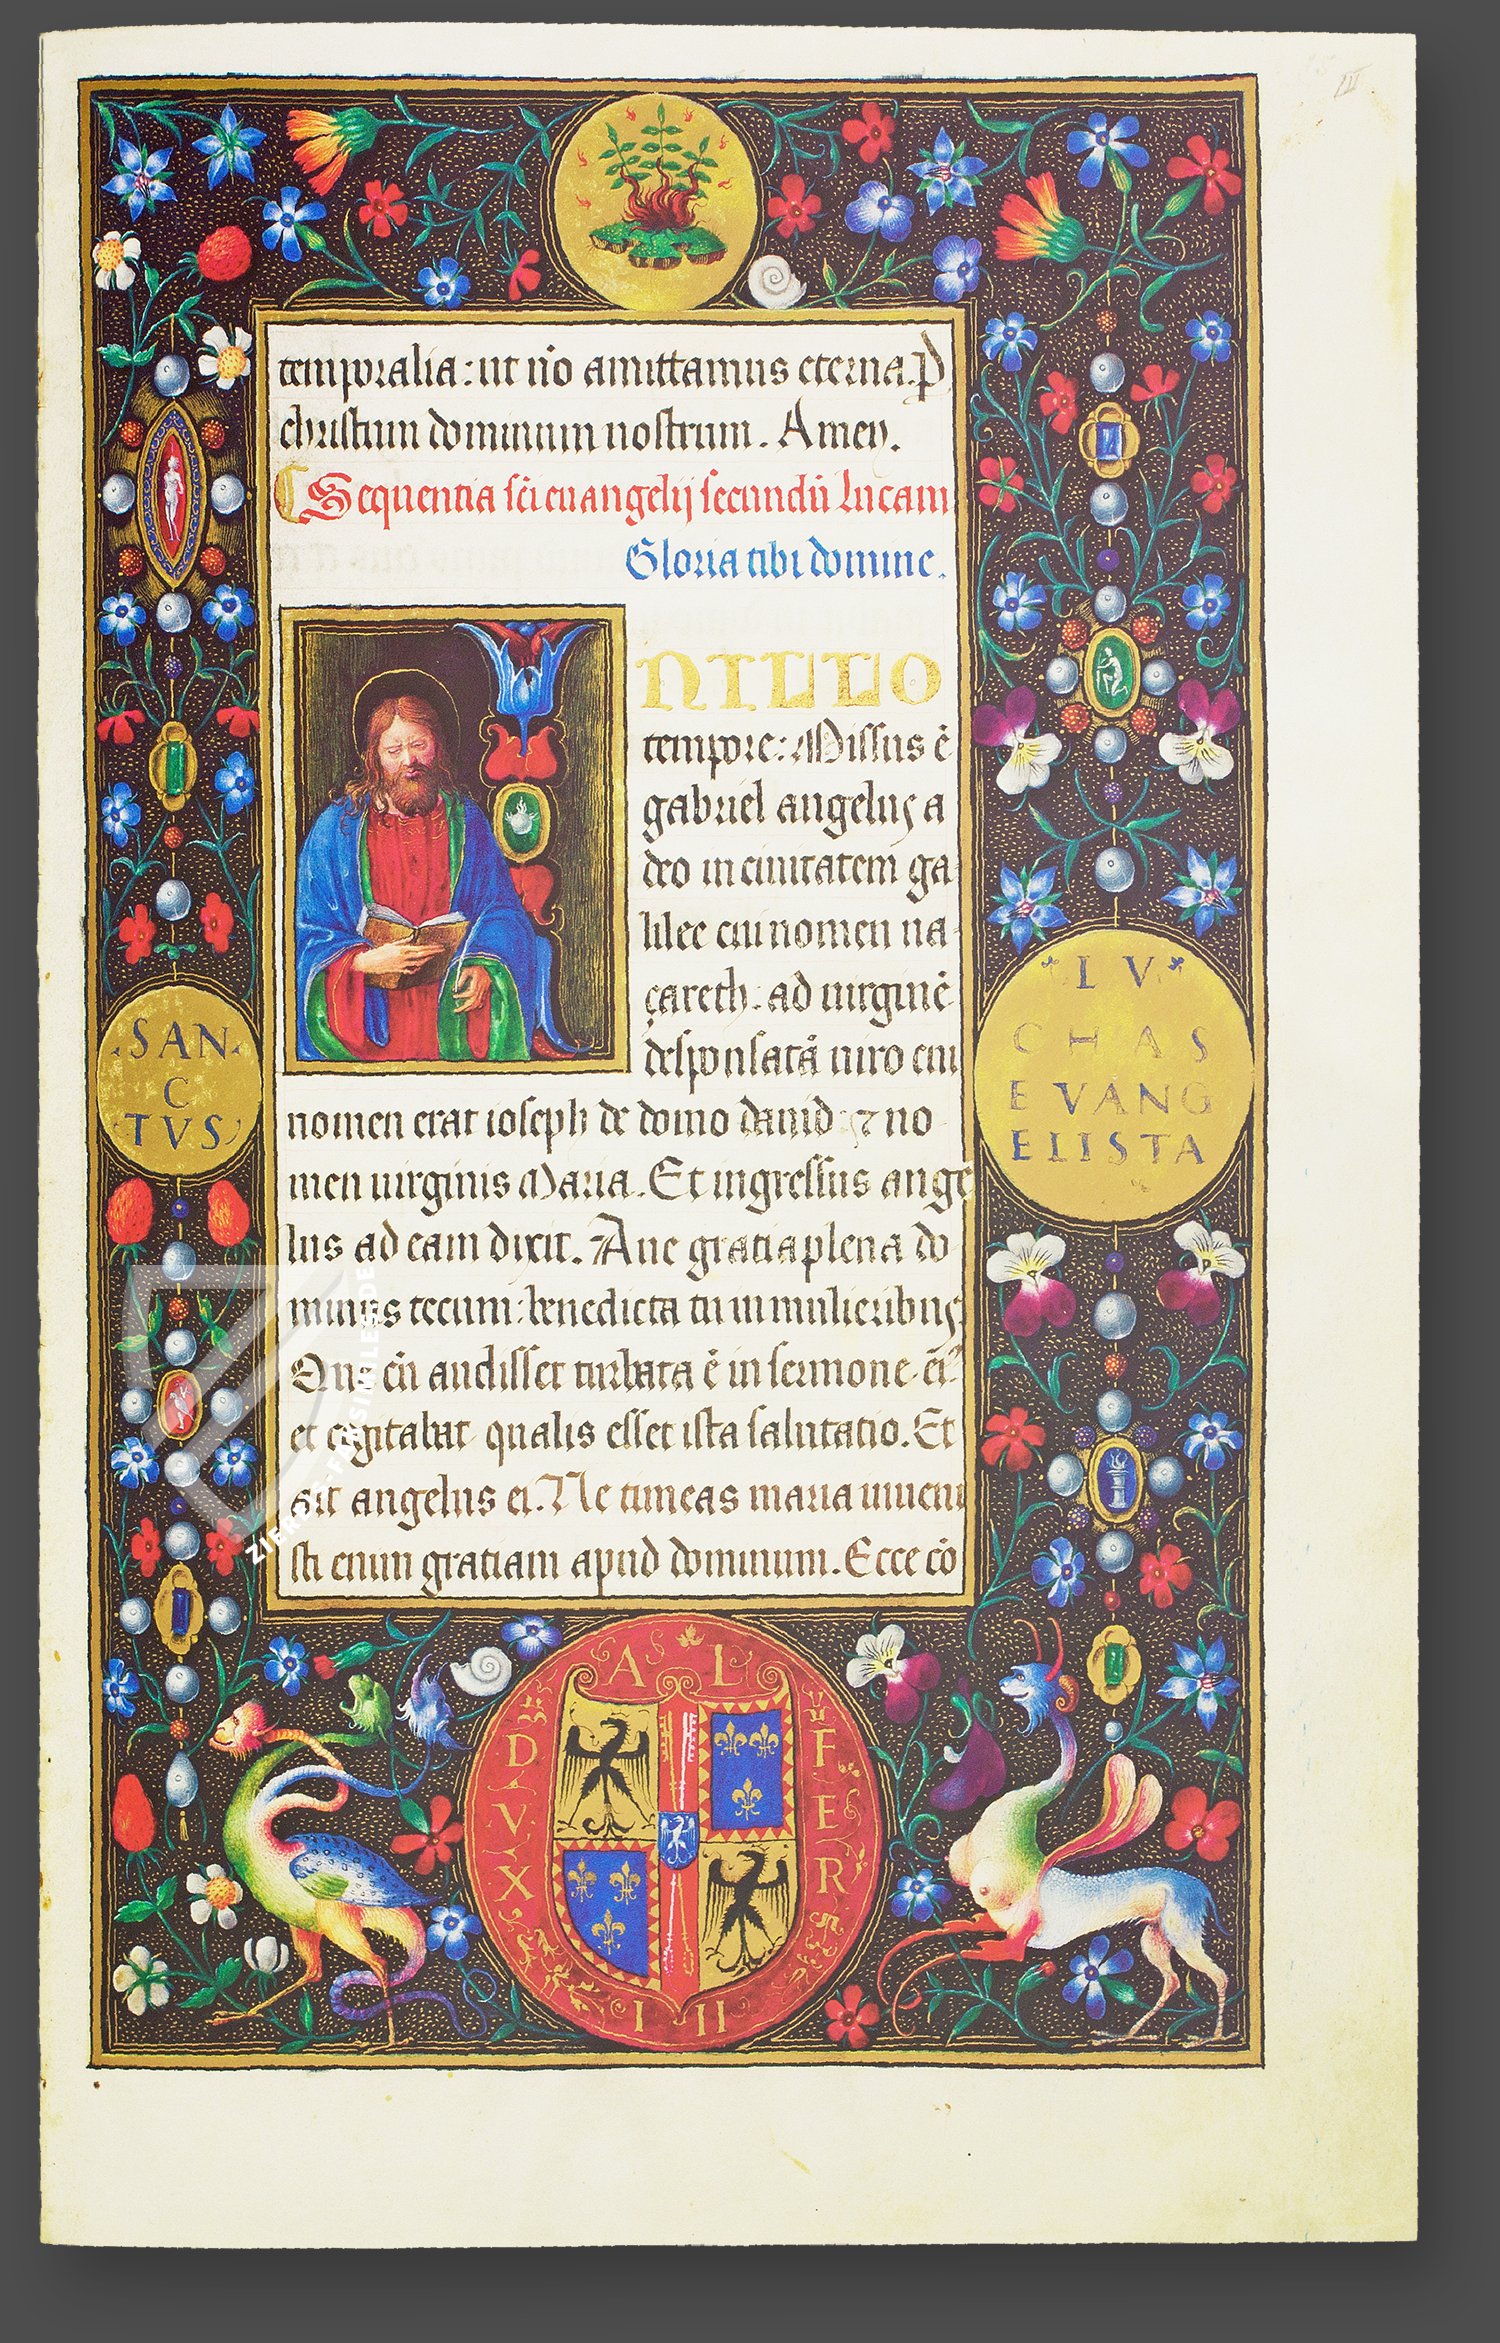 temporalia: ut nõ amittamus eterna. p
christum dominum nostrum. Amen.
Sequentia sc̃i euangelij secundũ Lucam
Gloria tibi domine.
NILLO
tempore: Missus ẽ
gabriel angelus a
deo in ciuitatem ga
lilee cui nomen na
çareth: ad uirginẽ
desponsatã uiro cui
nomen erat ioseph de domo dauid: ⁊ no
men uirginis Maria. Et ingressus ange
lus ad eam dixit. Aue gratia plena do
minus tecum: benedicta tu in mulieribus.
Que cũ audisset turbata ẽ in sermone ei
et cogitabat qualis esset ista salutatio. Et
ait angelus ei. Ne timeas maria inueni
sti enim gratiam apud dominum. Ecce cõ
·SAN·
C
TVS
LV
CHAS
EVANG
ELISTA
AL
FER
DVX
III
ZIFREDE